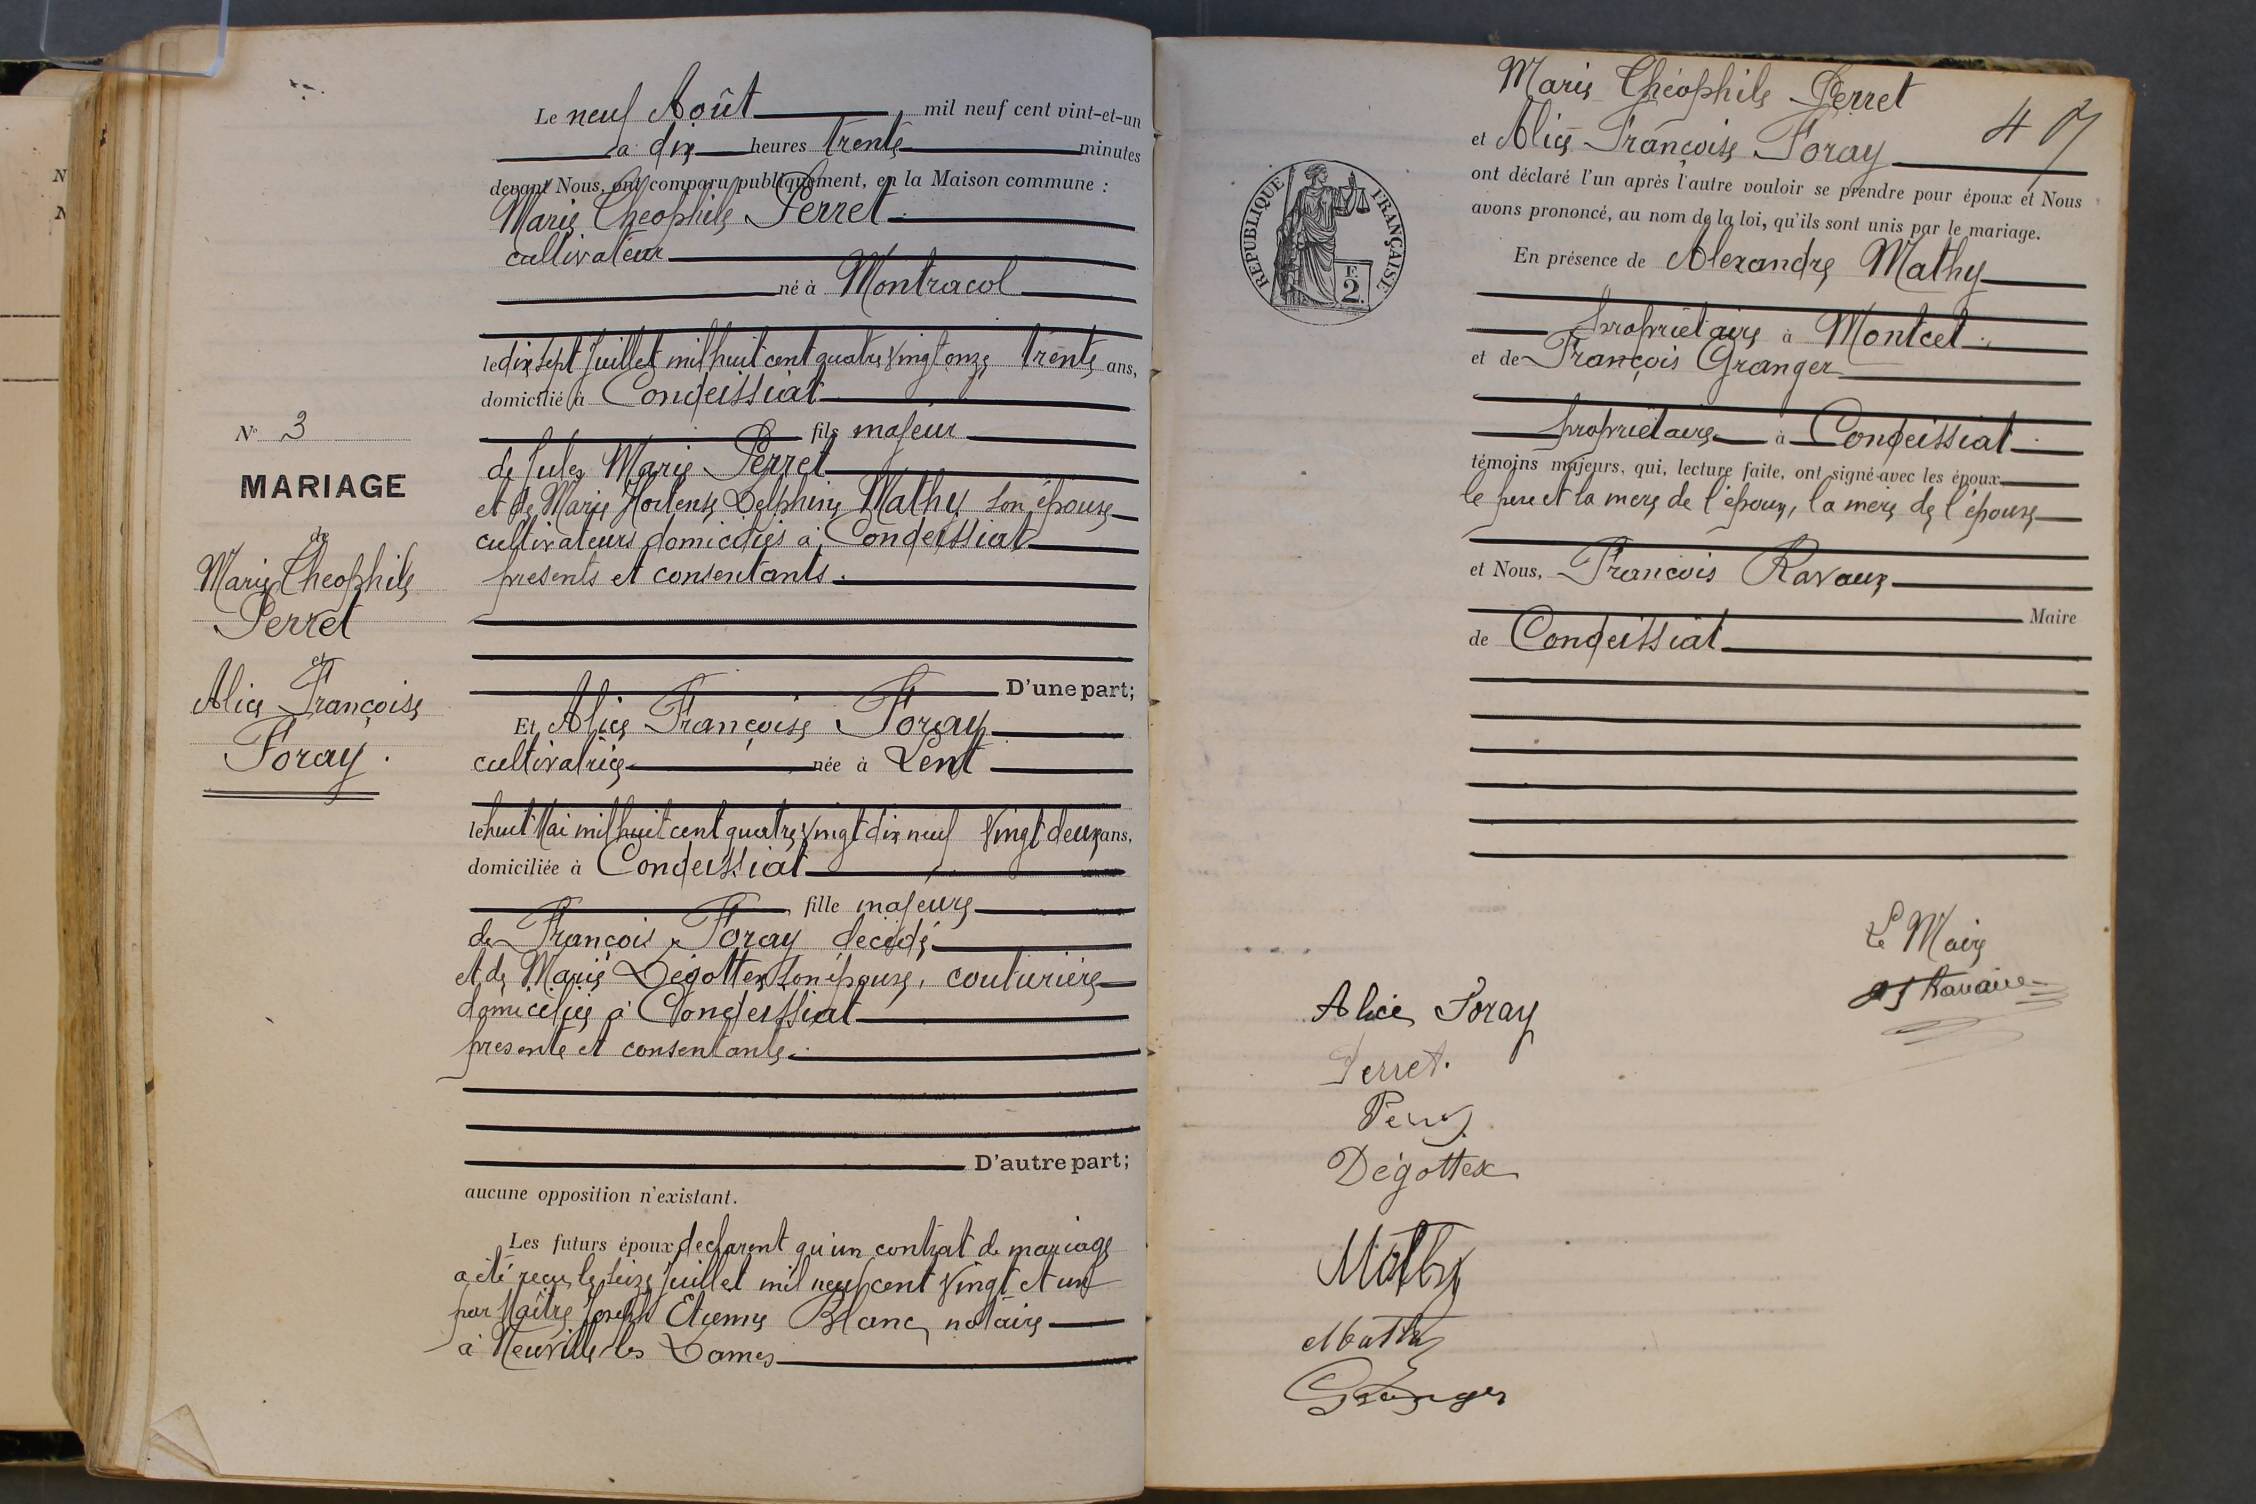 Le neuf Août mil neuf cent vint-et-un
à dix heures trente minutes
devant Nous, ont comparu publiquement, en la Maison commune :
Marie Théophile Perret
cultivateur
né à Montracol
le dix sept Juillet mil huit cent quatre vingt onze, trente ans,
domicilié à Condeissiat
fils majeur
de Jules Marie Perret
et de Marie Hortense Delphine Mathy son épouse
cultivateurs domiciliés à Condeissiat
présents et consentants.
D'une part;
Et Alice Françoise Foray
cultivatrice née à Lent
le huit Mai mil huit cent quatre vingt dix neuf vingt deux ans,
domiciliée à Condeissiat
fille majeure
de François Foray décédé
et de Marie Dégottex son épouse, couturière
domiciliée à Condeissiat
présente et consentante.
D'autre part;
aucune opposition n'existant.
Les futurs époux déclarent qu'un contrat de mariage
a été reçu le seize Juillet mil neuf cent vingt et un
par Maître Joseph Etienne Blanc, notaire
à Neuville les Dames
N° 3
MARIAGE
de
Marie Théophile
Perret
et
Alice Françoise
Foray.
Marie Théophile Perret
47
et Alice Françoise Foray
ont déclaré l'un après l'autre vouloir se prendre pour époux et Nous
avons prononcé, au nom de la loi, qu'ils sont unis par le mariage.
RÉPUBLIQUE FRANÇAISE
F.
2.
En présence de Alexandre Mathy
propriétaire à Montcet
et de François Granger
propriétaire à Condeissiat
témoins majeurs, qui, lecture faite, ont signé avec les époux
le père et la mère de l'époux, la mère de l'épouse
et Nous, François Ravaux
Maire
de Condeissiat
Le Maire
Ravaux
Alice Foray
Perret.
Perret
Dégottex
Mathy
Mathy
Granger